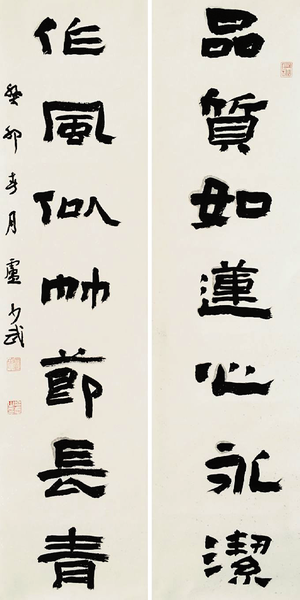 品質如蓮心永潔
作風似竹節長青
癸卯春月盧少武